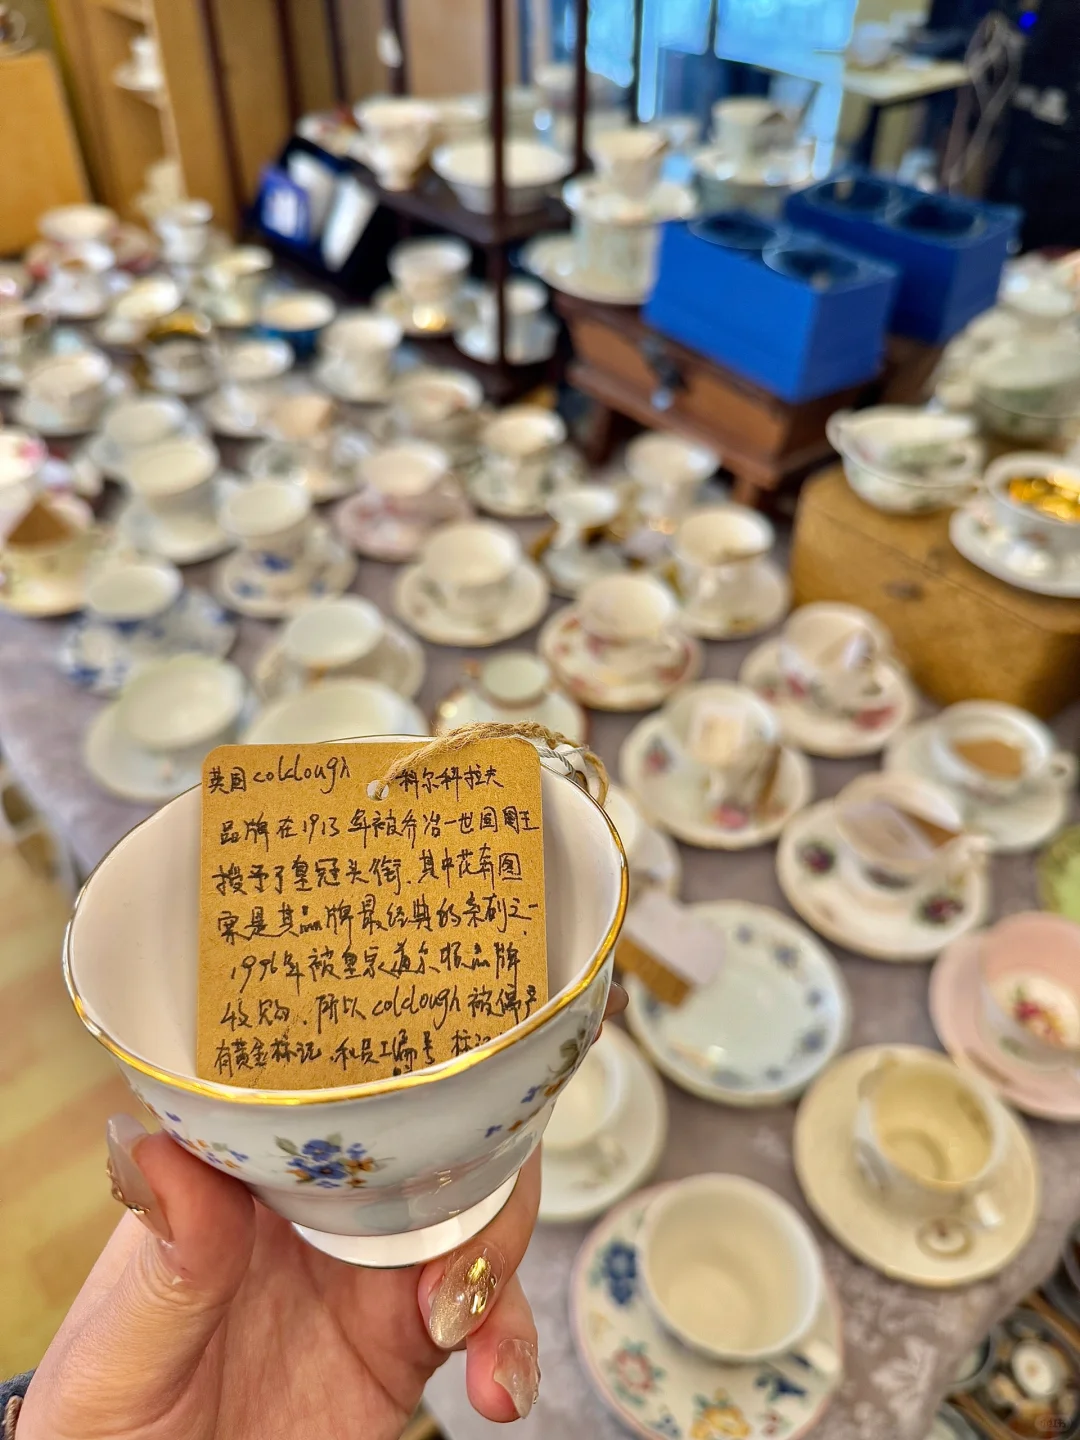 英国 colclough 科尔科拉夫
品牌 在1913年被乔治一世国国王
授予了皇冠头衔.其中花卉图
案是其品牌最经典的系列之一.
1996年被皇家道尔顿品牌
收购.所以colclough被停产
有黄金标记.和员工编号 标记